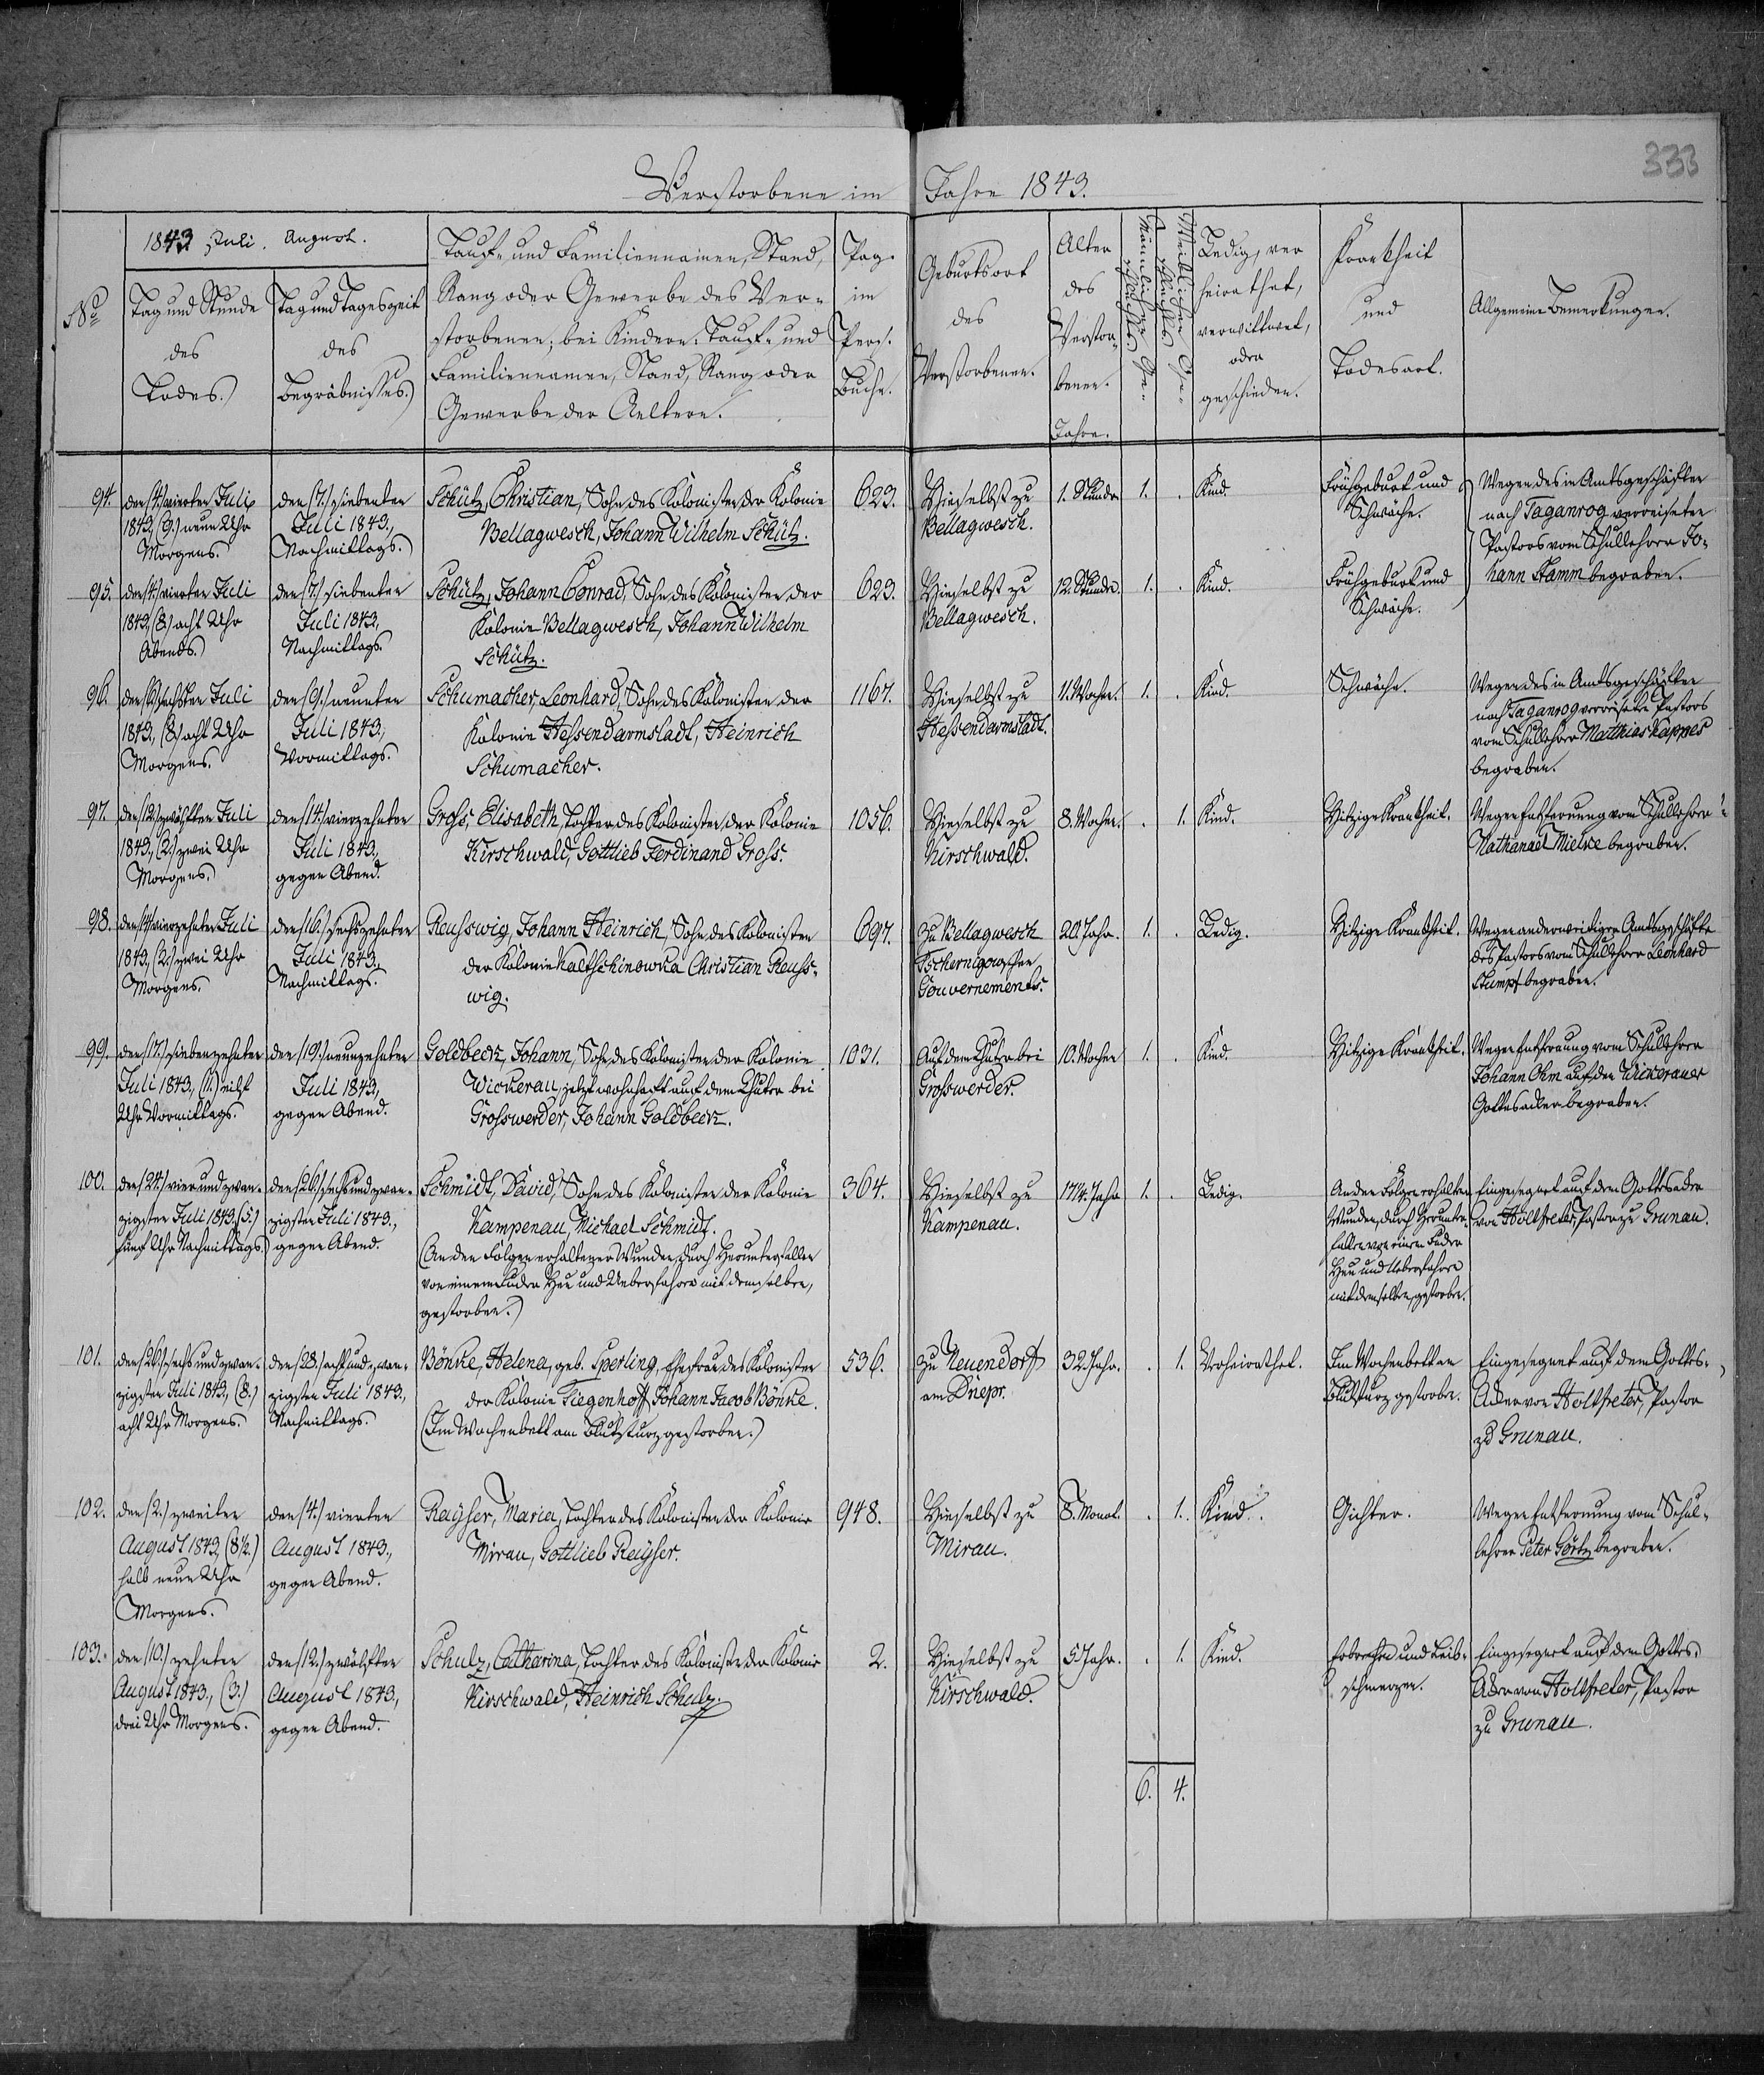 333
Verstorbene im Jahre 1843.
No
1843 Juli. August.
Tag und Stunde
des
Todes.)
Tag und Tageszeit
des
Begräbnisses.)
Tauf- und Familiennamen, Stand,
Rang oder Gewerbe des Ver-
storbenen; bei Kindern: Tauf- und
Familiennamen, Stand, Rang oder
Gewerbe der Aeltern.
Pag.
im
Pers.
Buche.
Geburtsort
des
Verstorbenen.
Alter
des
Verstor-
benen.
Jahre.
Männlichen Ge-
schlechts
Weiblichen Ge-
schlechts
Ledig, ver
heirathet,
verwittwet,
oder
geschieden.
Krankheit
und
Todesart.
Allgemeine Bemerkungen.
94.
den (4.) vierten Juli
1843, (9.) neun Uhr
Morgens.
den (7.) siebenten
Juli 1843,
Nachmittags.
Schütz, Christian, Sohn des Kolonisten der Kolonie
Bellagwesch, Johann Wilhelm Schütz.
623.
Hieselbst zu
Bellagwesch.
1. Stunde
1.
.
Kind.
Frühgeburt und
Schwäche.
Wegen des in Amtsgeschäften
nach Taganrog verreiseten
Pastors vom Schullehrer Jo-
hann Stamm begraben.
95.
den (4.) vierten Juli
1843, (8.) acht Uhr
Abends.)
den (7.) siebenten
Juli 1843,
Nachmittags.
Schütz, Johann Conrad, Sohn des Kolonisten der
Kolonie Bellagwesch, Johann Wilhelm
Schütz.
623.
Hieselbst zu
Bellagwesch.
12. Stunde.
1.
.
Kind.
Frühgeburt und
Schwäche.
96.
den (6.) sechsten Juli
1843, (8.) acht Uhr
Morgens.
den (9.) neunten
Juli 1843,
Vormittags.
Schumacher, Leonhard, Sohn des Kolonisten der
Kolonie Hessendarmstadt, Heinrich
Schumacher.
1167.
Hieselbst zu
Hessendarmstadt.
11. Wochen.
1.
.
Kind.
Schwäche.
Wegen des in Amtsgeschäften
nach Taganrog verreiseten Pastors
vom Schullehrer Matthias Kappes
begraben.
97.
den (12.) zwölften Juli
1843, (2.) zwei Uhr
Morgens.
den (14.) vierzehnten
Juli 1843,
gegen Abend.
Gross, Elisabeth, Tochter des Kolonisten der Kolonie
Kirschwald, Gottlieb Ferdinand Gross.
1056.
Hieselbst zu
Kirschwald.
8. Wochen.
.
1.
Kind.
Hitzige Krankheit.
Wegen Entfernung vom Schullehrer
Nathanael Mielke begraben.
98.
den (14.) vierzehnten Juli
1843, (2.) zwei Uhr
Morgens.
den (16.) sechszehnten
Juli 1843,
Nachmittags.
Reusswig, Johann Heinrich, Sohn des Kolonisten
der Kolonie Kaltschinowka Christian Reuss-
wig.
697.
Zu Bellagwesch
Tschernigowschen
Gouvernements.
20. Jahr.
1.
.
Ledig.
Hitzige Krankheit.
Wegen anderweitigen Amtsgeschäfte
des Pastors vom Schullehrer Leonhard
Stumpf begraben.
99.
den (17.) siebenzehnten
Juli 1843, (11.) eilf
Uhr Vormittags.
den (19.) neunzehnten
Juli 1843,
gegen Abend.
Goldbeck, Johann, Sohn des Kolonisten der Kolonie
Wickerau, jetzt wohnhaft auf dem Chutor bei
Grosswerder, Johann Goldbeck.
1031.
Auf dem Chutor bei
Grosswerder.
10. Wochen
1.
.
Kind.
Hitzige Krankheit.
Wegen Entfernung vom Schullehrer
Johann Ohm auf dem Wickerauer
Gottesacker begraben.
100.
den (24.) vier und zwan-
zigsten Juli 1843, (5.)
fünf Uhr Nachmittags.)
den (26.) sechs und zwan-
zigsten Juli 1843,
gegen Abend.
Schmidt, David, Sohn des Kolonisten der Kolonie
Kampenau, Michael Schmidt.
(An den Folgen erhaltener Wunden, durch Herunterfallen
von einem Fuder Heu und Ueberfahren mit demselben,
gestorben.)
364.
Hieselbst zu
Kampenau.
17 1/4. Jahr
1.
.
Ledig.
An den Folgen erhaltenen
Wunden, durch Herunter-
fallen von einem Fuder
Heu und Ueberfahren
mit demselben, gestorben.
Eingesegnet auf dem Gottesacker
von Holtfreter, Pastor zu Grunau.
101.
den (26.) sechs und zwan-
zigsten Juli 1843, (8.)
acht Uhr Morgens.
den (28.) acht und zwan-
zigsten Juli 1843,
Nachmittags.
Bönke, Helena, geb. Sperling, Ehefrau des Kolonisten
der Kolonie Tiegenhoff Johann Jacob Bönke.
(Im Wochenbett am Blutsturz gestorben.)
536.
Zu Neuendorff
am Dnepr.
32. Jahr.
.
1.
Verheirathet.
Im Wochenbett am
Blutsturz gestorben.
Eingesegnet auf dem Gottes-
Acker von Holtfreter, Pastor
zu Grunau.
102.
den (2.) zweiten
August 1843, (8 1/2.)
halb neun Uhr
Morgens.
den (4.) vierten
August 1843,
gegen Abend.
Rayser, Maria, Tochter des Kolonisten der Kolonie
Mirau, Gottlieb Rayser.
948.
Hieselbst zu
Mirau.
8. Monat.
.
1.
Kind.
Gichter.
Wegen Entfernung vom Schul-
lehrer Peter Görtz begraben.
103.
den (10.) zehnten
August 1843, (3.)
drei Uhr Morgens.
den (12.) zwölften
August 1843,
gegen Abend.
Schulz, Catharina, Tochter des Kolonisten der Kolonie
Kirschwald, Heinrich Schulz.
2.
Hieselbst zu
Kirschwald.
5 Jahr.
.
1.
Kind.
Erbrechen und Leib-
schmerzen.
Eingesegnet auf dem Gottes-
Acker von Holtfreter, Pastor
zu Grunau.
6. 4.